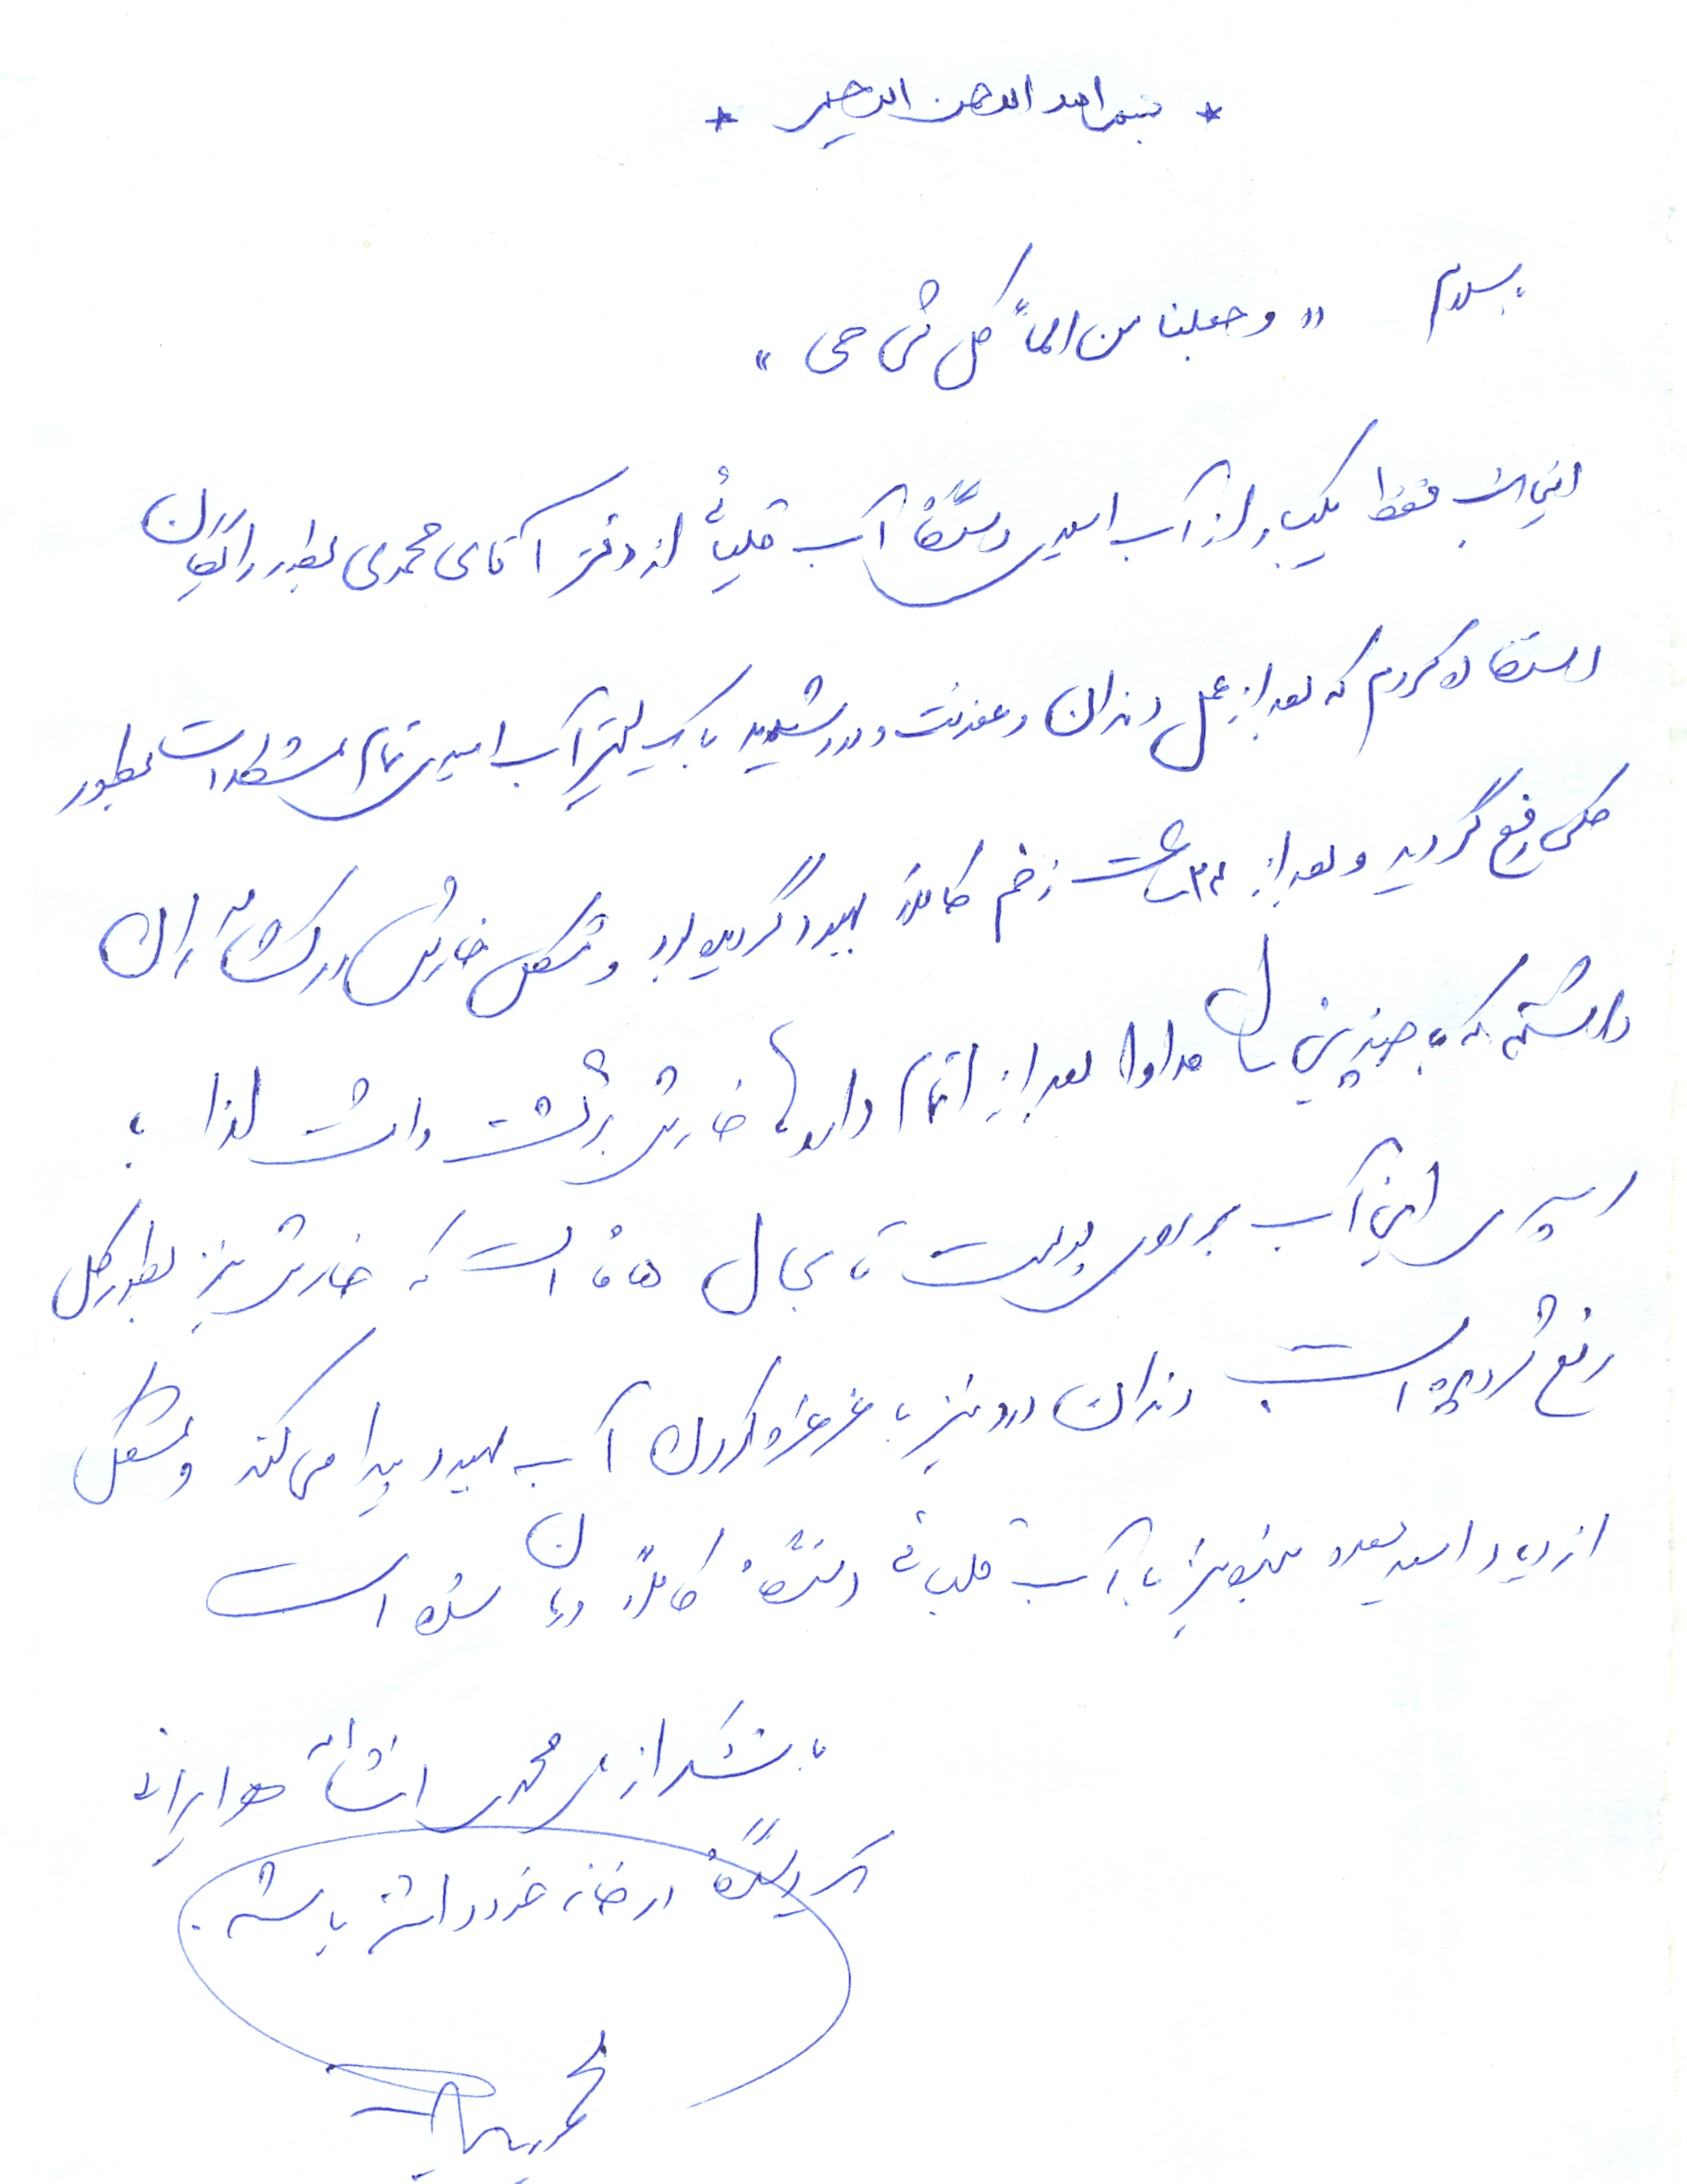 * بسم الله الرحمن الرحیم *
باسلام « وجعلنا من الماء کل شی حی »
اینجانب فقط یکبار از آب اسیدی دستگاه آب قلیائی از دفتر آقای محمدی بطور رایگان
استفاده کردم که بعد از عمل دندان و عفونت و درد شدید با یک لیتر آب اسیدی تمام مشکلات بطور
کلی رفع گردید و بعد از ۲۴ ساعت زخم کاملاً بهبود گردیده بود و مشکل خارش در کشاله ران
داشتم که با چندین سال مداوا بعد از اتمام داروها خارش برگشت داشت لذا با
اسپری این آب بر روی پوست تا بحال ماه است که خارش نیز بطور کل
رفع گردیده است دندان درد نیز با غرغره کردن آب بهبود پیدا می کند و مشکل
ازدیاد اسید معده نیز با آب قلیائی دستگاه کاملاً درمان شده است
با تشکر از محمدی انشااله هر ایرانی
یک دستگاه در خانه خود داشته باشد.